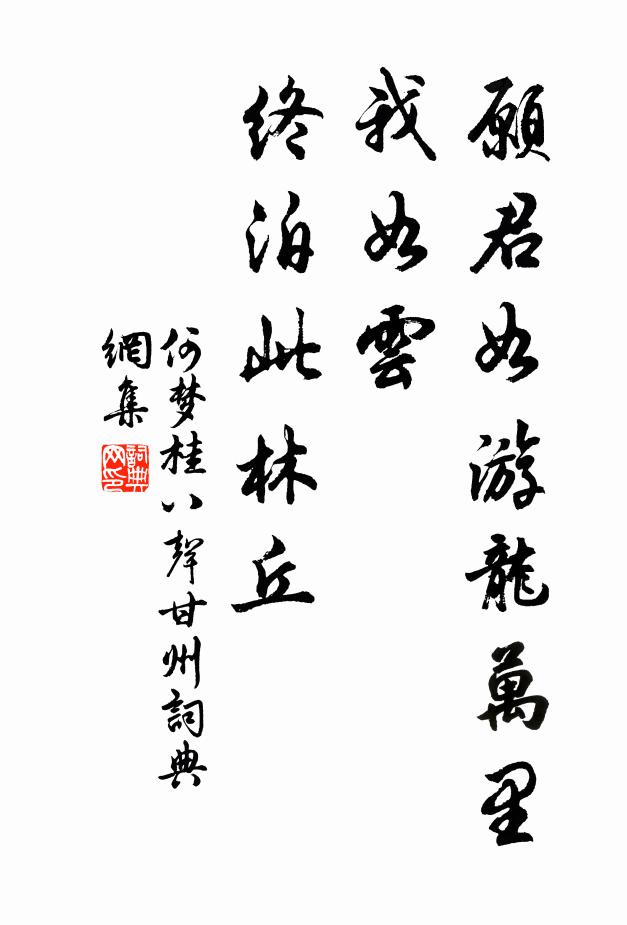 願君如游龍萬里
我如雲
終泊此林丘
何梦桂八聲甘州詞典
網集
詞典网印